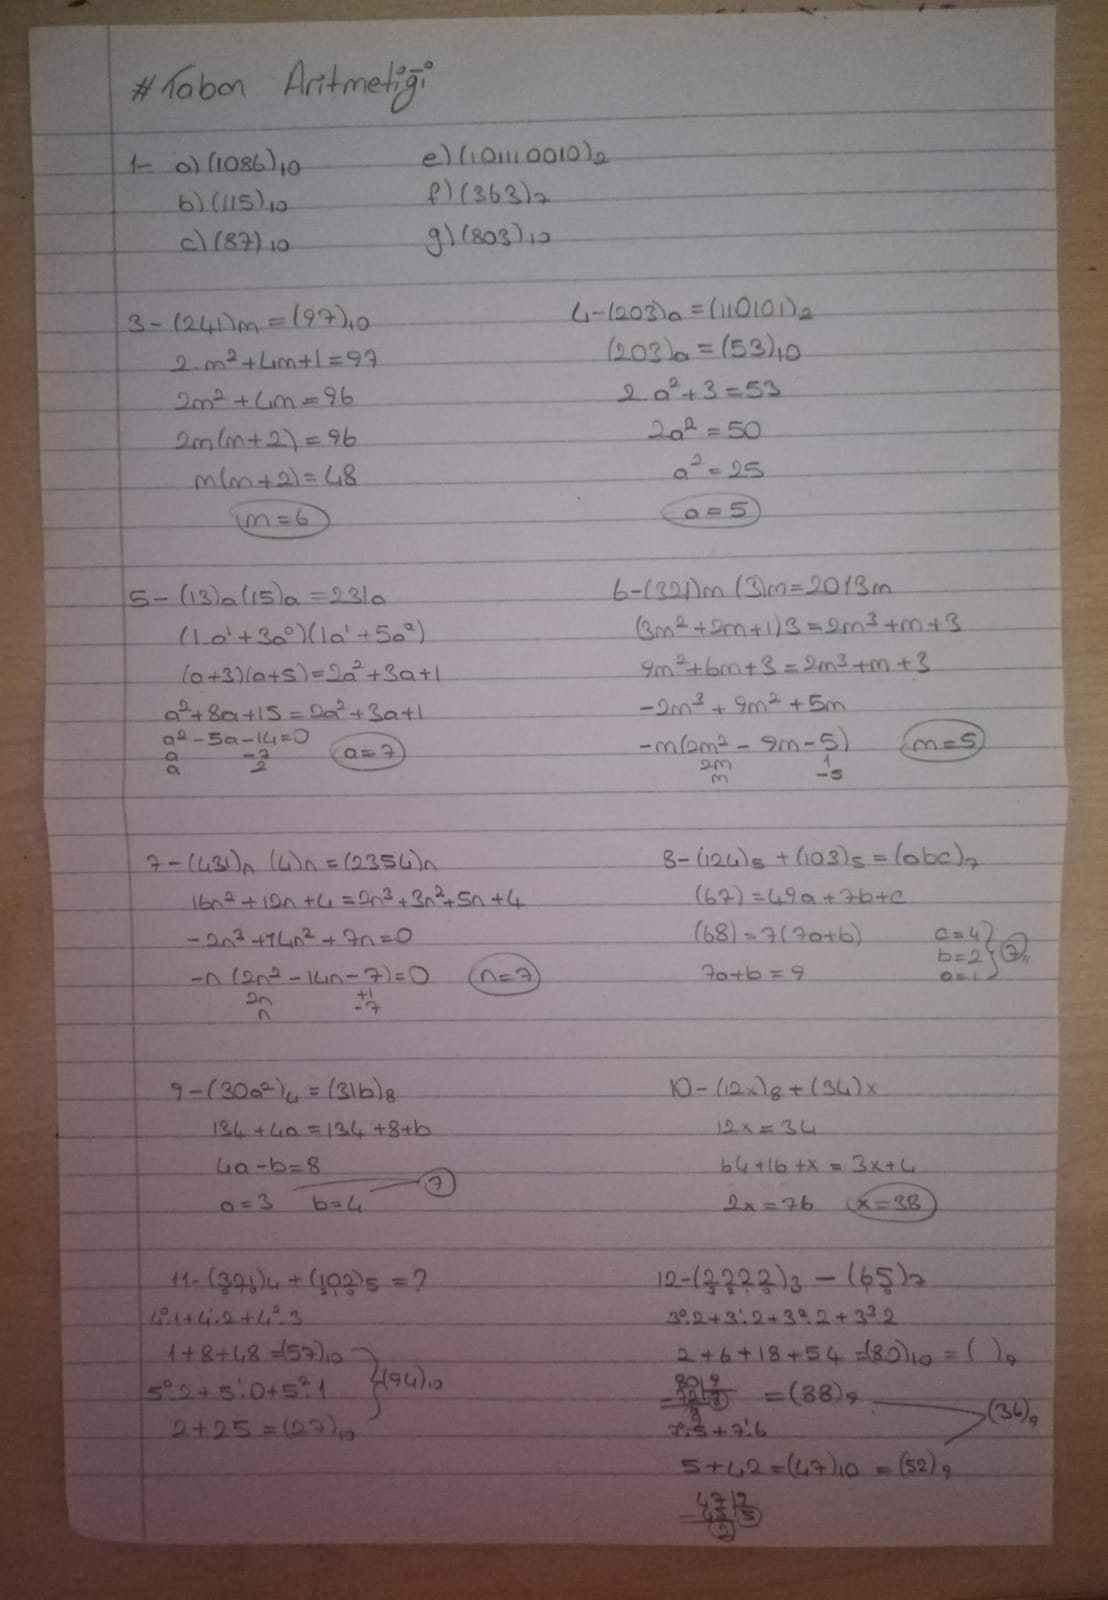 #Taban Aritmetiği
1- a) (1086)10
b) (115)10
c) (87)10
e) (101110010)2
f) (363)7
g) (803)10
3- (241)m = (97)10
2.m²+4m+1=97
2m²+4m=96
2m(m+2)=96
m(m+2)=48
m=6
4-(203)a=(110101)2
(203)a=(53)10
2a²+3=53
2a²=50
a²=25
a=5
5- (13)a(15)a=231a
(1.a¹+3a⁰)(1a¹+5a⁰)
(a+3)(a+5)=2a²+3a+1
a²+8a+15=2a²+3a+1
a²-5a-14=0
a -7
a 2
a=7
6-(321)m (3)m=2013m
(3m²+2m+1)3=2m³+m+3
9m²+6m+3=2m³+m+3
-2m³+9m²+5m
-m(2m²-9m-5)
2m 1
m -5
m=5
7-(431)n (4)n=(2354)n
16n²+12n+4=2n³+3n²+5n+4
-2n³+14n²+7n=0
-n(2n²-14n-7)=0
2n +1
n -7
n=7
8-(124)5+(103)5=(abc)7
(67)=49a+7b+c
(68)=7(7a+b)
7a+b=9
c=4
b=2
a=1
7
9-(30a2)4=(31b)8
134+4a=134+8+b
4a-b=8
a=3 b=4
7
10-(12x)8+(34)x
12x=34
64+16+x=3x+4
2x=76 x=38
11-(321)4+(102)5=?
4⁰.1+4¹.2+4².3
1+8+48=(57)10
5⁰.2+5¹.0+5².1
2+25=(27)10
(94)10
12-(2222)3-(65)7
3⁰.2+3¹.2+3².2+3³2
2+6+18+54=(80)10=( )9
=(88)9
7⁰.5+7¹.6
(36)9
5+42=(47)10=(52)9